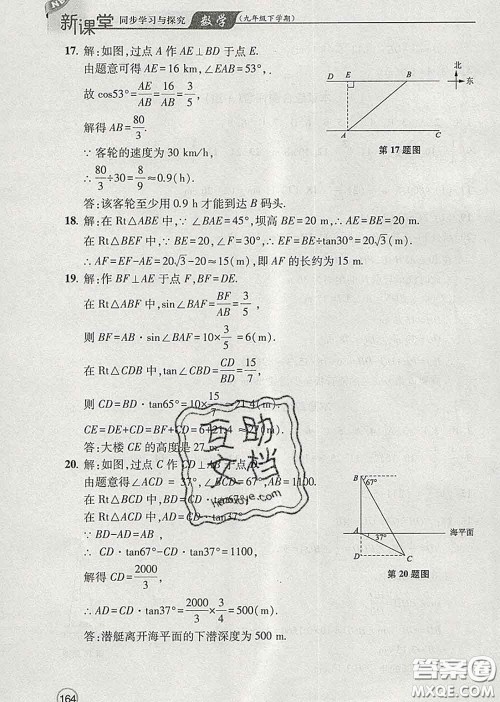 新课堂 同步学习与探究 数学 (九年级下学期)
17. 解:如图,过点 A 作 AE⊥BD 于点 E.
由题意可得 AE=16 km,∠EAB=53°,
故 cos53°=AE/AB=16/AB=3/5,
解得 AB=80/3.
∵ 客轮的速度为 30 km/h,
∴ 80/3÷30=8/9≈0.9(h).
答:该客轮至少用 0.9 h 才能到达 B 码头.
北
东
D E B
A C
第 17 题图
18. 解:在 Rt△ABE 中,∵ ∠BAE=45°,坝高 BE=20 m,∴ AE=BE=20 m.
在 Rt△BEF 中,∵ BE=20,∠F=30°,∴ EF=BE÷tan30°=20√3(m).
∴ AF=EF-AE=20√3-20≈15(m),即 AF 的长约为 15 m.
19. 解:作 BF⊥AE 于点 F,BF=DE.
在 Rt△ABF 中,sin∠BAF=BF/AB=3/5,
则 BF=AB·sin∠BAF=10×3/5=6(m).
在 Rt△CDB 中,tan∠CBD=CD/BD=15/7,
则 CD=BD·tan65°=10×15/7≈21.4(m).
CE=DE+CD=BF+CD=6+21.4≈27(m).
答:大楼 CE 的高度是 27 m.
20. 解:如图,过点 C 作 CD⊥AB 于点 D.
由题意得∠ACD=37°,∠BCD=67°,AB=1100.
在 Rt△ACD 中,AD=CD·tan37°.
在 Rt△BCD 中,BD=CD·tan67°.
∵ BD-AD=AB,
∴ CD·tan67°-CD·tan37°=1100,
解得 CD=2000/3(m),
∴ AD=CD·tan37°=2000/3×3/4=500(m).
答:潜艇离开海平面的下潜深度为 500 m.
B 67°
A 37° 海平面
D C
第 20 题图
互助
文档
164
答案圈
MXQE.COM